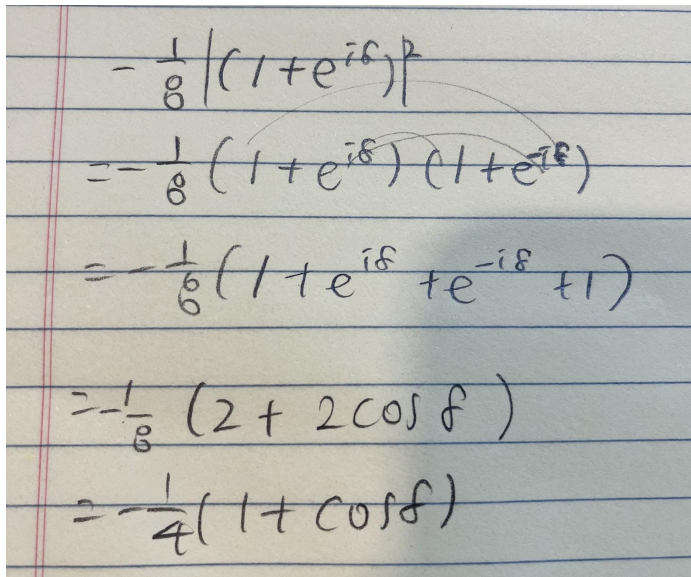 - 1/8 |(1+e^{iδ})|²
= - 1/8 (1+e^{iδ}) (1+e^{-iδ})
= - 1/8 (1+e^{iδ} +e^{-iδ} +1)
= - 1/8 (2+ 2cosδ)
= - 1/4 (1+ cosδ)